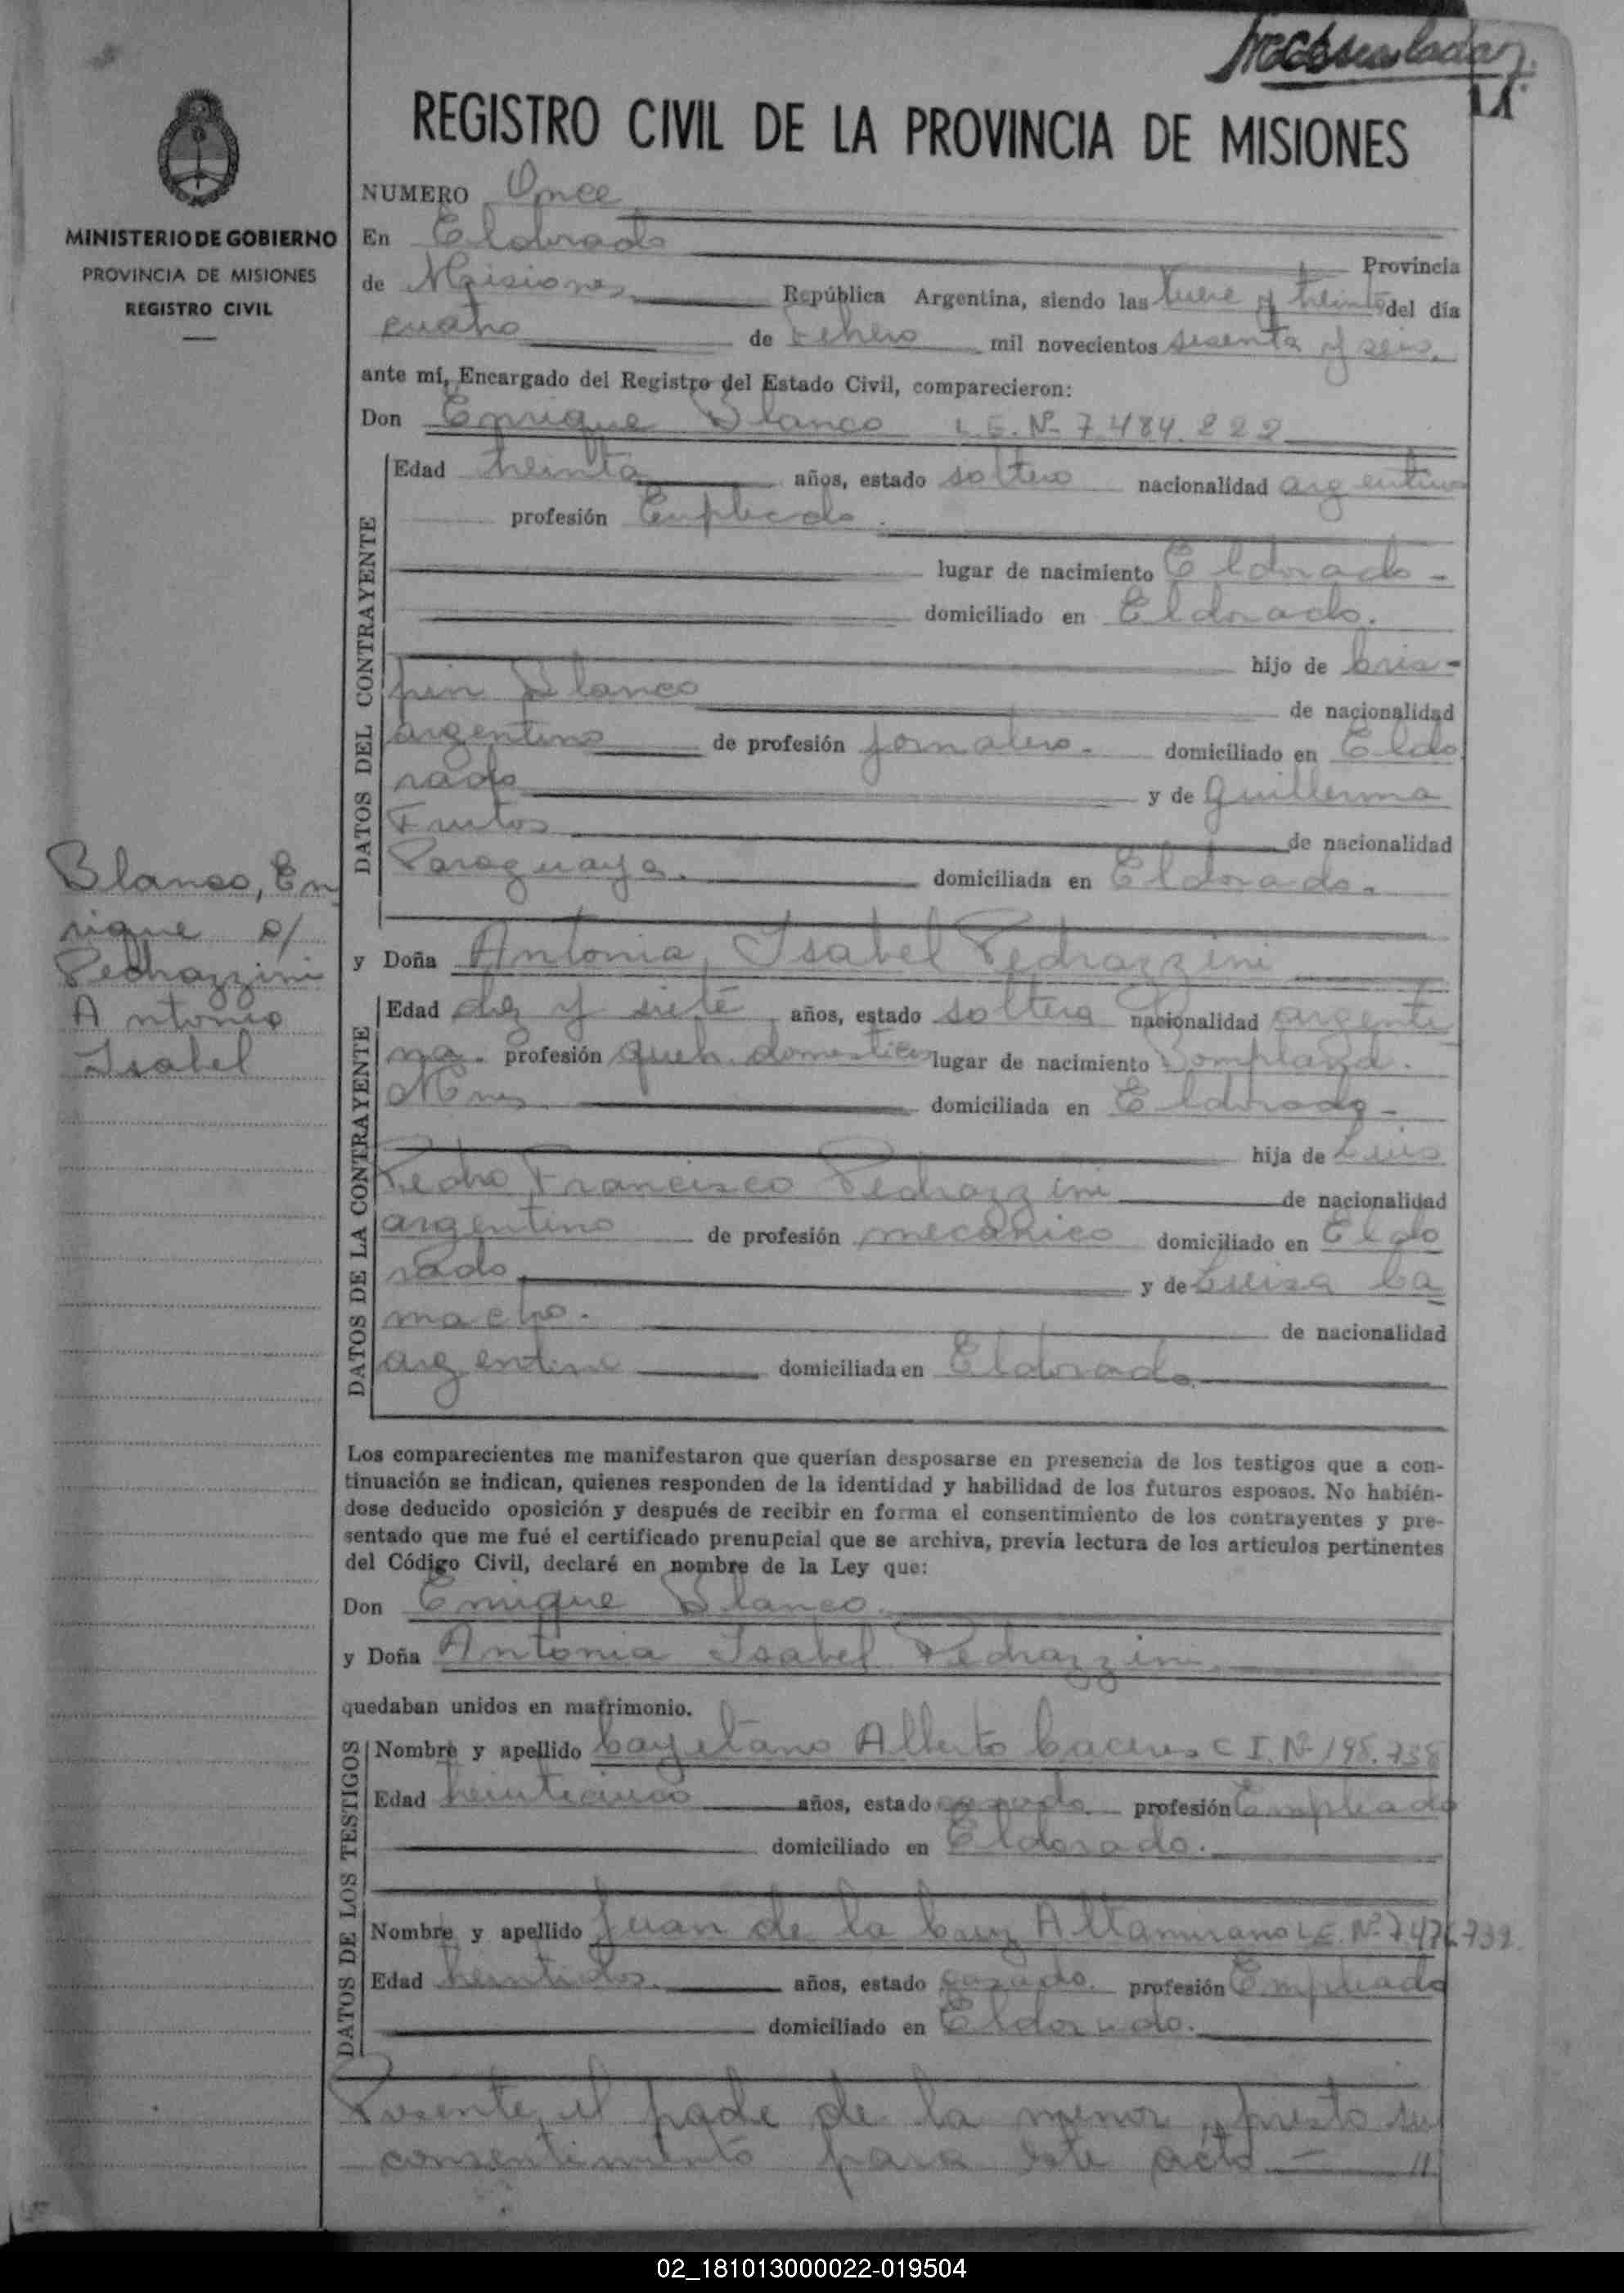 REGISTRO CIVIL DE LA PROVINCIA DE MISIONES
MINISTERIO DE GOBIERNO
PROVINCIA DE MISIONES
REGISTRO CIVIL
Blanco, En
rique c/
Pedrazzini
Antonia
Isabel
NUMERO Once
En Eldorado Provincia
de Misiones República Argentina, siendo las y treinta del día
cuatro de Febrero mil novecientos sesenta y seis.
ante mí, Encargado del Registro del Estado Civil, comparecieron:
Don Enrique Blanco L.E. Nº 7.484.222
DATOS DEL CONTRAYENTE
Edad treinta años, estado soltero nacionalidad argentino
profesión Empleado.
lugar de nacimiento Eldorado -
domiciliado en Eldorado.
hijo de Cris-
pin Blanco de nacionalidad
argentino de profesión jornalero. domiciliado en Eldo
rado y de Guillerma
Frutos de nacionalidad
Paraguaya. domiciliada en Eldorado.
y Doña Antonia Isabel Pedrazzini
DATOS DE LA CONTRAYENTE
Edad diez y siete años, estado soltera nacionalidad argenti
na. profesión queh. domesticos lugar de nacimiento Bompland.
Mnes. domiciliada en Eldorado -
hija de Luis
Pedro Francisco Pedrazzini de nacionalidad
argentino de profesión mecanico domiciliado en Eldo
rado y de Luisa Ca
macho. de nacionalidad
argentina domiciliada en Eldorado
Los comparecientes me manifestaron que querían desposarse en presencia de los testigos que a con-
tinuación se indican, quienes responden de la identidad y habilidad de los futuros esposos. No habién-
dose deducido oposición y después de recibir en forma el consentimiento de los contrayentes y pre-
sentado que me fué el certificado prenupcial que se archiva, previa lectura de los artículos pertinentes
del Código Civil, declaré en nombre de la Ley que:
Don Enrique Blanco.
y Doña Antonia Isabel Pedrazzini
quedaban unidos en matrimonio.
DATOS DE LOS TESTIGOS
Nombre y apellido Cayetano Alberto Caceres C I. Nº 198.738
Edad treinticinco años, estado casado profesión Empleado
domiciliado en Eldorado.
Nombre y apellido Juan de la Cruz Altamirano L.E. Nº 7.476.732
Edad treintidos. años, estado casado. profesión Empleado
domiciliado en Eldorado.
Presente el padre de la menor, presto su
consentimiento para este acto — //
02_181013000022-019504